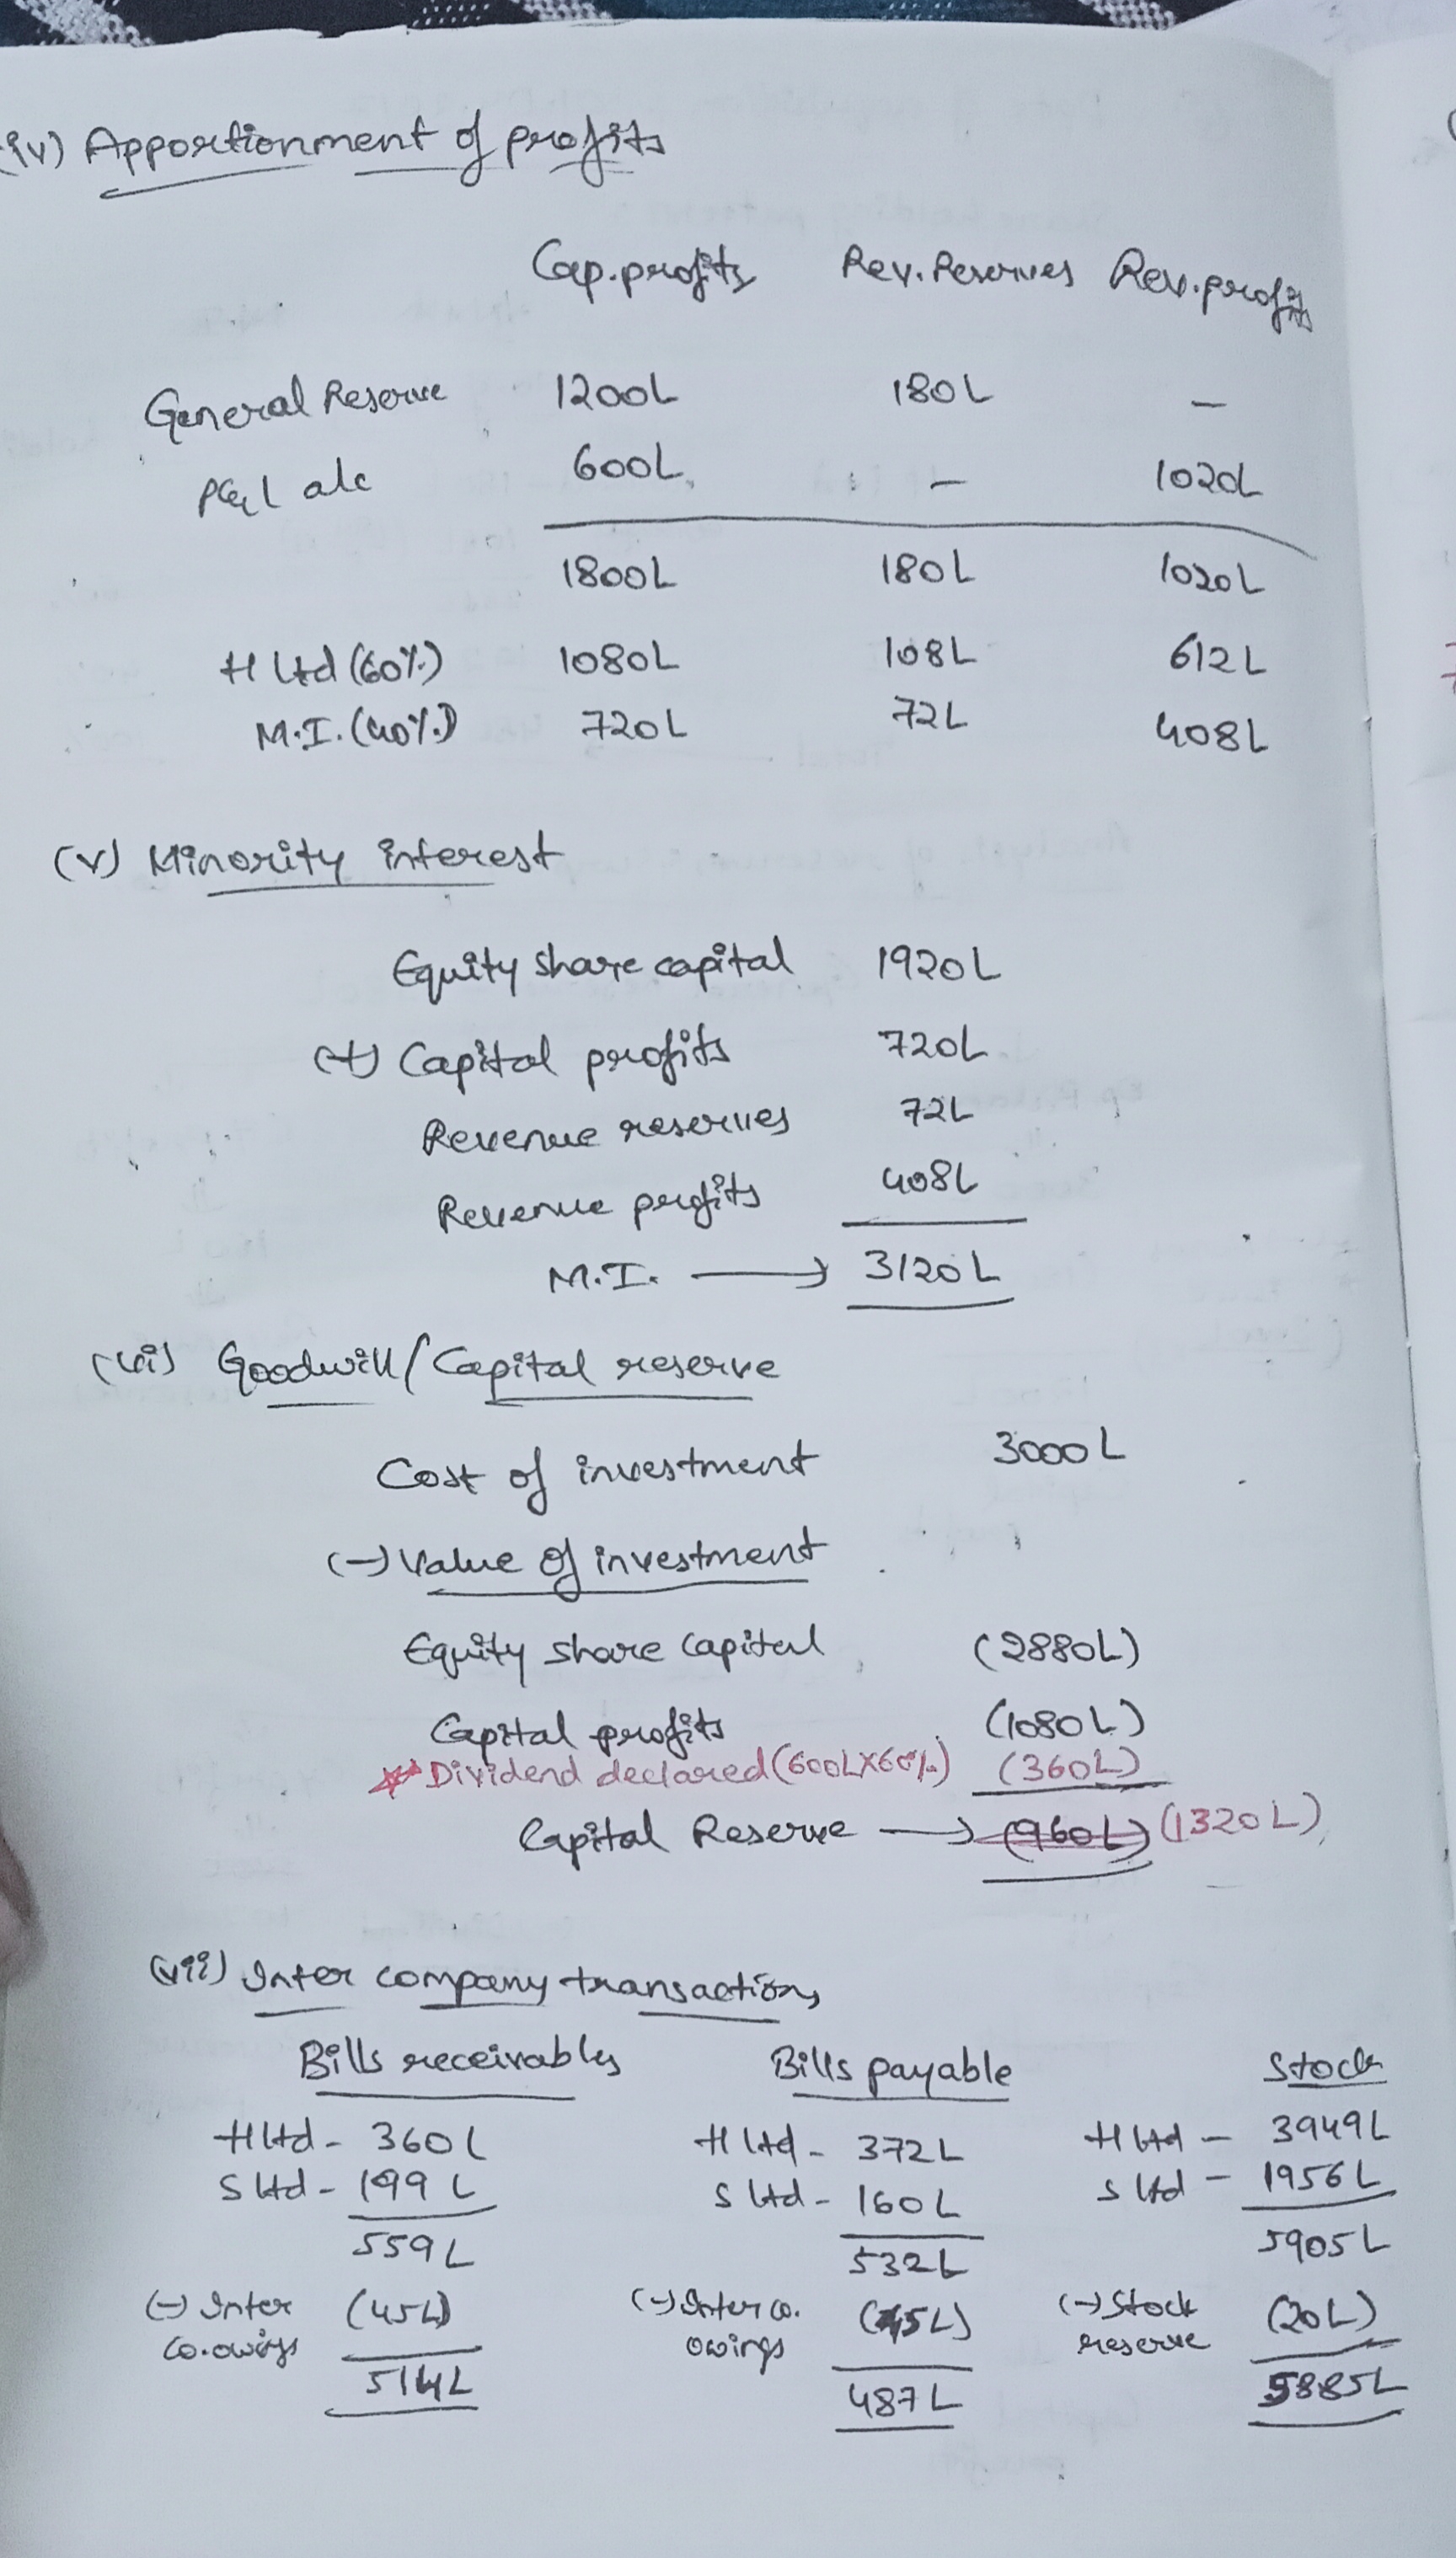 (iv) Apportionment of profits
Cap.profits Rev.Reserves Rev.profits
General Reserve 1200L 180L —
P&L a/c 600L — 1020L
1800L 180L 1020L
H Ltd (60%) 1080L 108L 612L
M.I. (40%) 720L 72L 408L
(v) Minority interest
Equity share capital 1920L
(+) Capital profits 720L
Revenue reserves 72L
Revenue profits 408L
M.I. → 3120L
(vi) Goodwill/Capital reserve
Cost of investment 3000L
(-) Value of investment
Equity share capital (2880L)
Capital profits (1080L)
Dividend declared (600L×60%) (360L)
Capital Reserve → (960L) (1320L)
(vii) Inter company transactions
Bills receivables Bills payable Stock
H Ltd - 360L H Ltd - 372L H Ltd - 3949L
S Ltd - 199L S Ltd - 160L S Ltd - 1956L
559L 532L 5905L
(-) Inter (45L) (-) Inter co. (45L) (-) Stock (20L)
co.owings owings reserve
514L 487L 5885L